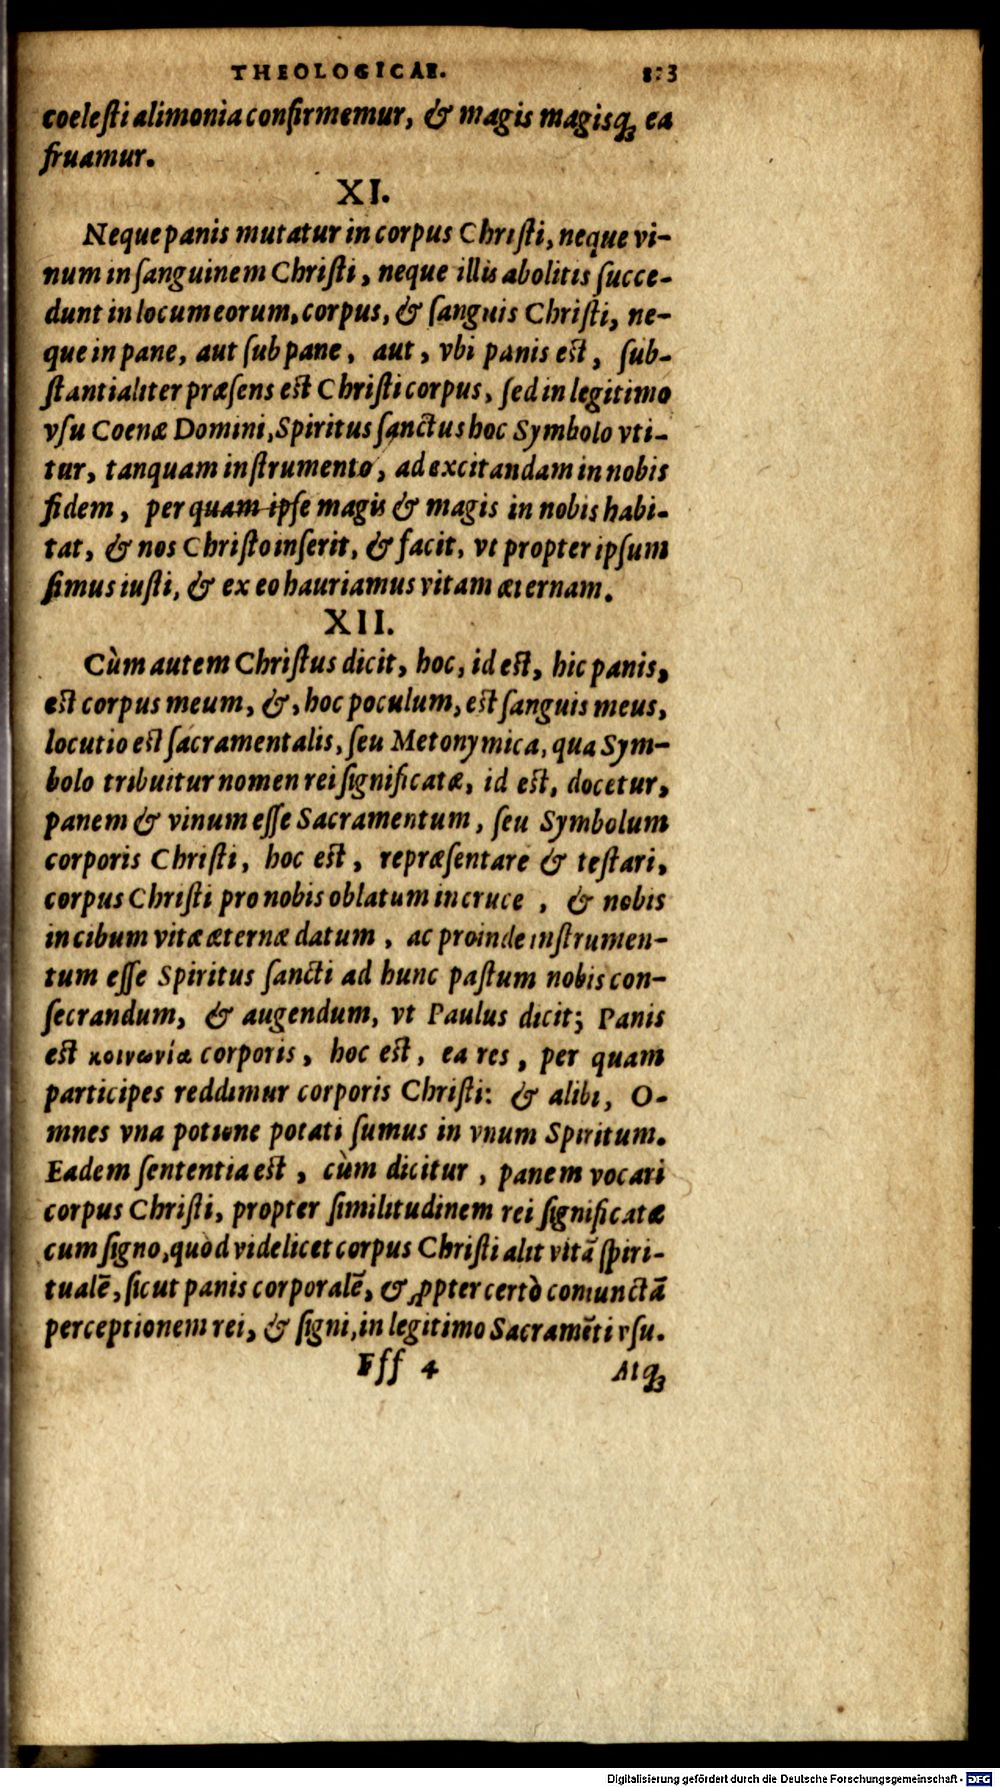 THEOLOGICAE. 823
coelesti alimonia confirmemur, & magis magisq́ꝫ ea
fruamur.
XI.
Neque panis mutatur in corpus Christi, neque vi-
num in sanguinem Christi, neque illis abolitis succe-
dunt in locum eorum, corpus, & sanguis Christi, ne-
que in pane, aut sub pane, aut, vbi panis est, sub-
stantialiter præsens est Christi corpus, sed in legitimo
vsu Coenæ Domini, Spiritus sanctus hoc Symbolo vti-
tur, tanquam instrumento, ad excitandam in nobis
fidem, per quam ipse magis & magis in nobis habi-
tat, & nos Christo inserit, & facit, vt propter ipsum
simus iusti, & ex eo hauriamus vitam æternam.
XII.
Cùm autem Christus dicit, hoc, id est, hic panis,
est corpus meum, &, hoc poculum, est sanguis meus,
locutio est sacramentalis, seu Metonymica, qua Sym-
bolo tribuitur nomen rei significatæ, id est, docetur,
panem & vinum esse Sacramentum, seu Symbolum
corporis Christi, hoc est, repræsentare & testari,
corpus Christi pro nobis oblatum in cruce, & nobis
in cibum vitæ æternæ datum, ac proinde instrumen-
tum esse Spiritus sancti ad hunc pastum nobis con-
secrandum, & augendum, vt Paulus dicit; Panis
est κοινωνία corporis, hoc est, ea res, per quam
participes reddimur corporis Christi: & alibi, O-
mnes vna potione potati sumus in vnum Spiritum.
Eadem sententia est, cùm dicitur, panem vocari
corpus Christi, propter similitudinem rei significatæ
cum signo, quòd videlicet corpus Christi alit vitã spiri-
tualẽ, sicut panis corporalẽ, & ꝓpter certò coniunctã
perceptionem rei, & signi, in legitimo Sacramẽti vsu.
Fff 4 Atqꝫ
Digitalisierung gefördert durch die Deutsche Forschungsgemeinschaft - DFG